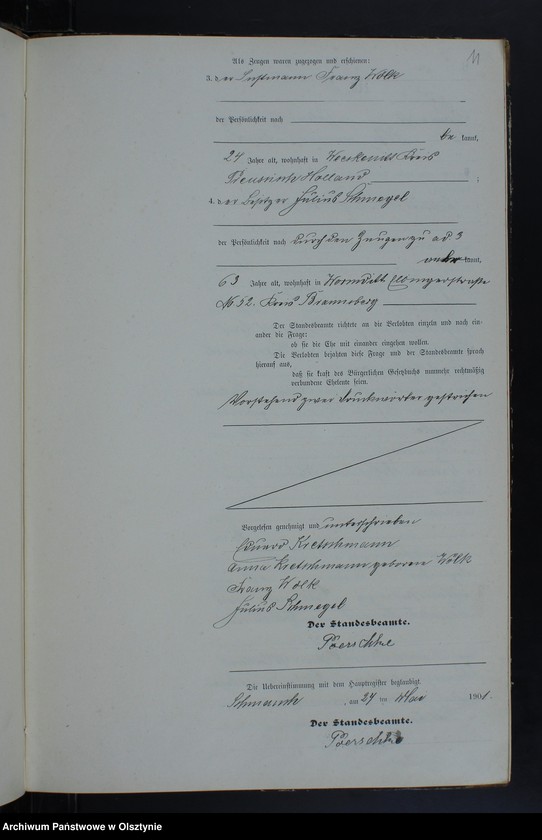 11
Als Zeugen waren zugezogen und erschienen:
3. der Instmann Franz Wölk
der Persönlichkeit nach
be kannt,
24 Jahre alt, wohnhaft in Kreis
Preussisch Holland ;
4. der Besitzer Julius Schmegel
der Persönlichkeit nach durch den Zeugen zu ad. 3
kannt,
63 Jahre alt, wohnhaft in Wormditt Elbingerstraße
No 52. Kreis Braunsberg
Der Standesbeamte richtete an die Verlobten einzeln und nach ein-
ander die Frage:
ob sie die Ehe mit einander eingehen wollen.
Die Verlobten bejahten diese Frage und der Standesbeamte sprach
hierauf aus,
daß sie kraft des Bürgerlichen Gesetzbuchs nunmehr rechtmäßig
verbundene Eheleute seien.
Vorstehend zwei Druckwörter gestrichen
Vorgelesen, genehmigt und unterschrieben
Eduard Kretschmann
Anna Kretschmann geboren Wölk
Franz Wölk
Julius Schmegel
Der Standesbeamte.
Poerschke
Die Uebereinstimmung mit dem Hauptregister beglaubigt.
Schmauch am 27 ten Mai 1901.
Der Standesbeamte.
Poerschke
Archiwum Państwowe w Olsztynie